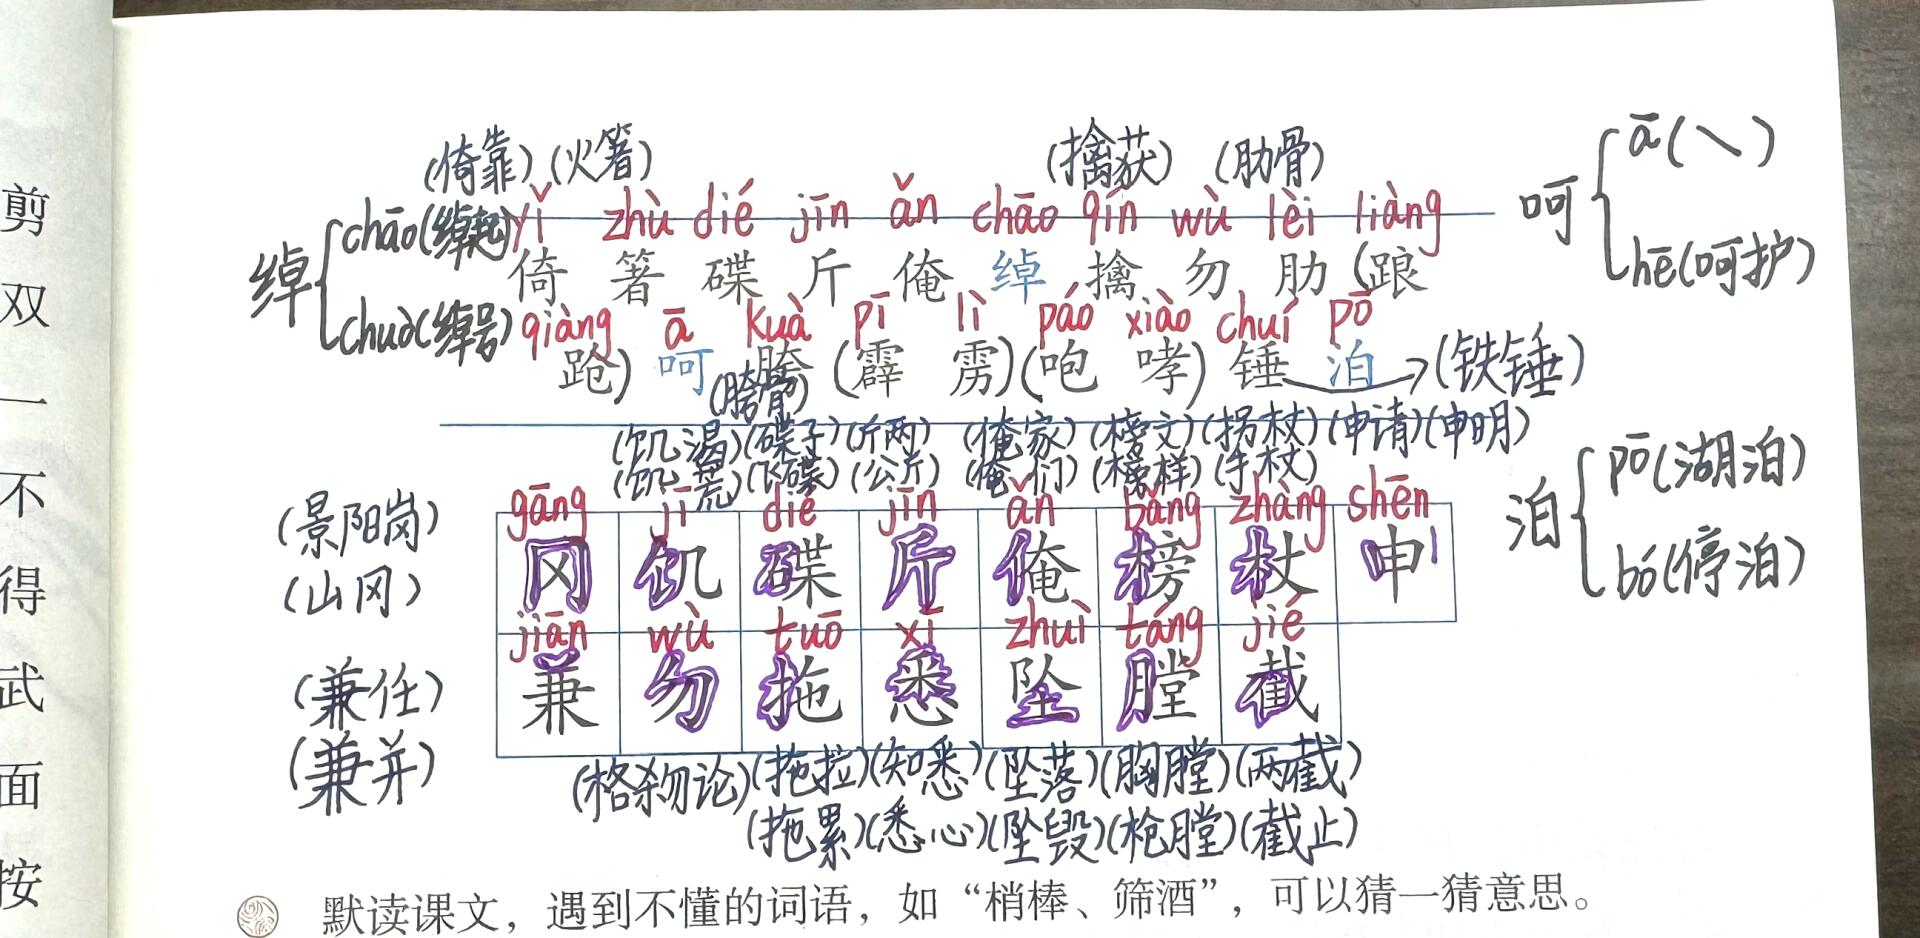 剪
双
一
不
得
武
面
按
(倚靠)(火箸) (擒获) (肋骨)
绰 chāo(绰起) chuò(绰号)
yǐ zhù dié jīn ǎn chāo qín wù lèi liàng
倚 箸 碟 斤 俺 绰 擒 勿 肋 (踉
qiàng ā kuà pī lì páo xiào chuí pō
跄) 呵 胯 (霹 雳)(咆 哮) 锤 泊 (铁锤)
(胯骨)
呵 ā(㇏) hē(呵护)
(饥渴)(碟子)(斤两) (俺家)(榜文)(拐杖)(申请)(申明)
(饥荒)(飞碟)(公斤) (俺们)(榜样)(手杖)
泊 pō(湖泊) bó(停泊)
(景阳岗)
(山冈)
gāng jī dié jīn ǎn bǎng zhàng shēn
冈 饥 碟 斤 俺 榜 杖 申
jiān wù tuō xī zhuì táng jié
兼 勿 拖 悉 坠 膛 截
(兼任)
(兼并)
(格杀勿论)(拖拉)(知悉)(坠落)(胸膛)(两截)
(拖累)(悉心)(坠毁)(枪膛)(截止)
默读课文，遇到不懂的词语，如“梢棒、筛酒”，可以猜一猜意思。